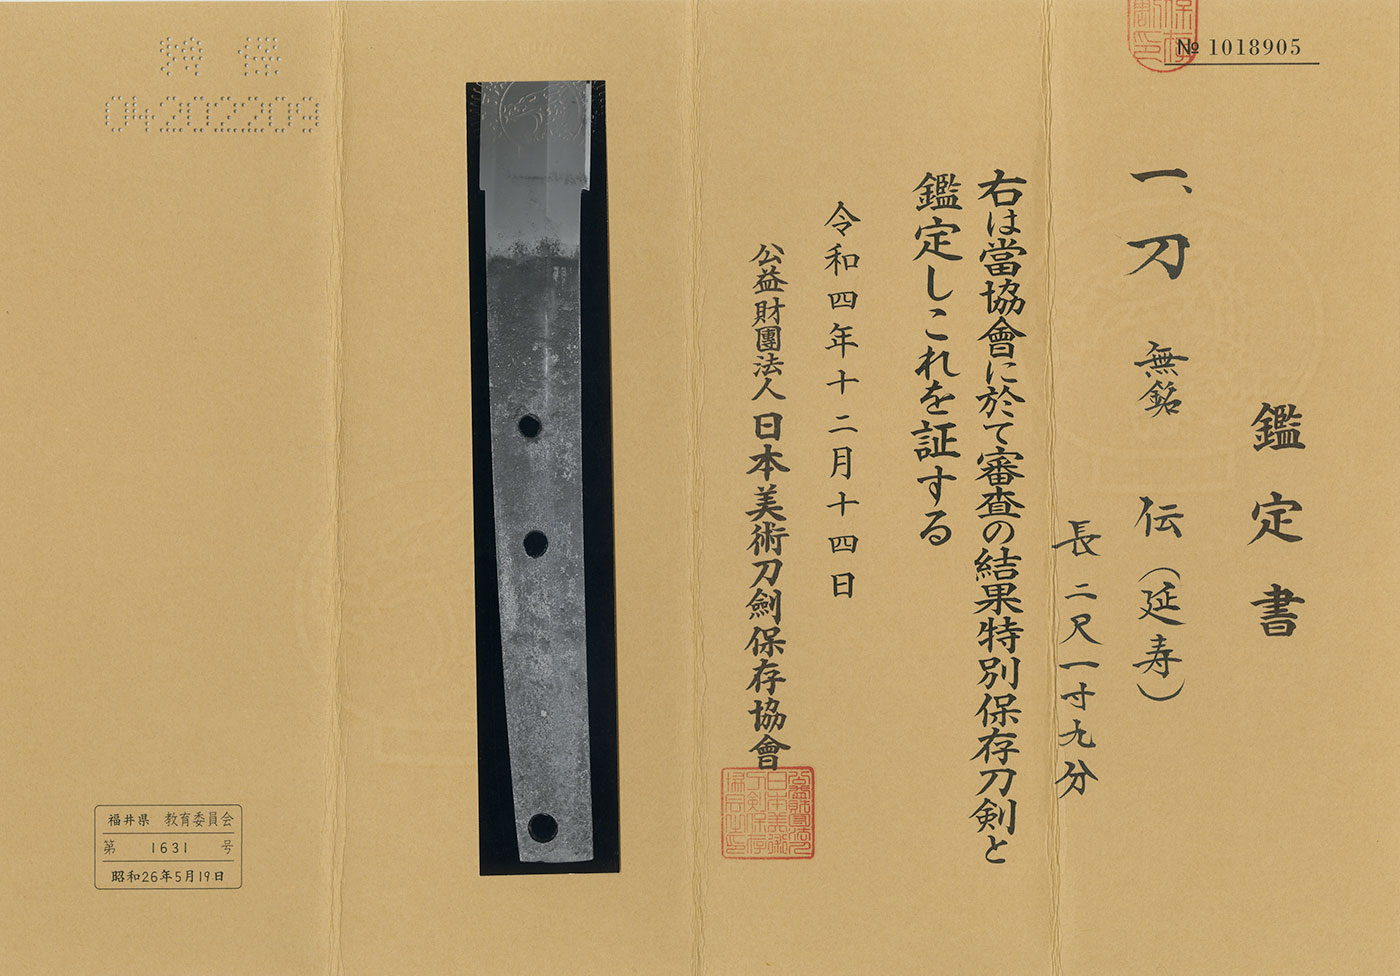 № 1018905
鑑定書
一、刀 無銘 伝(延寿)
長二尺一寸九分
右は當協會に於て審査の結果特別保存刀剣と
鑑定しこれを証する
令和四年十二月十四日
公益財團法人 日本美術刀劍保存協會
特保
04202209
福井県 教育委員会
第 1631 号
昭和26年5月19日